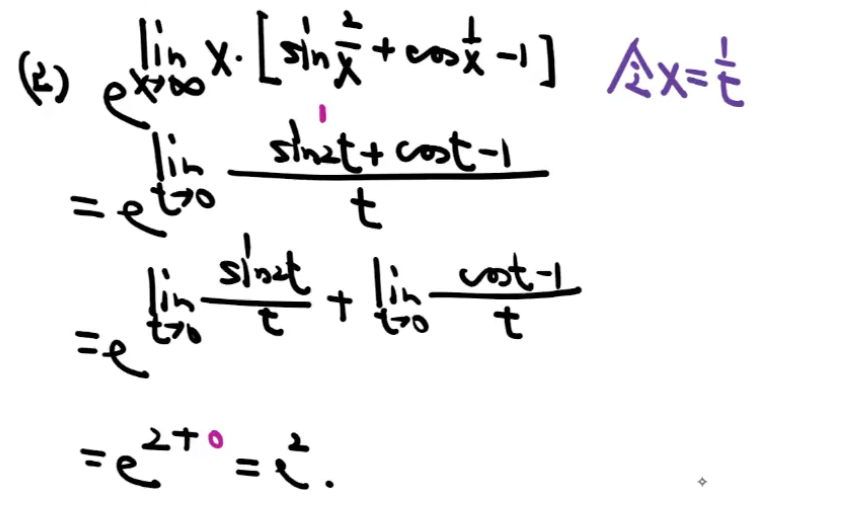 (2) e^{lim_{x→∞} x·[sin 2/x + cos 1/x − 1]} 令 x = 1/t
= e^{lim_{t→0} (sin2t + cost − 1)/t}
= e^{lim_{t→0} sin2t/t + lim_{t→0} (cost − 1)/t}
= e^{2+0} = e^2.